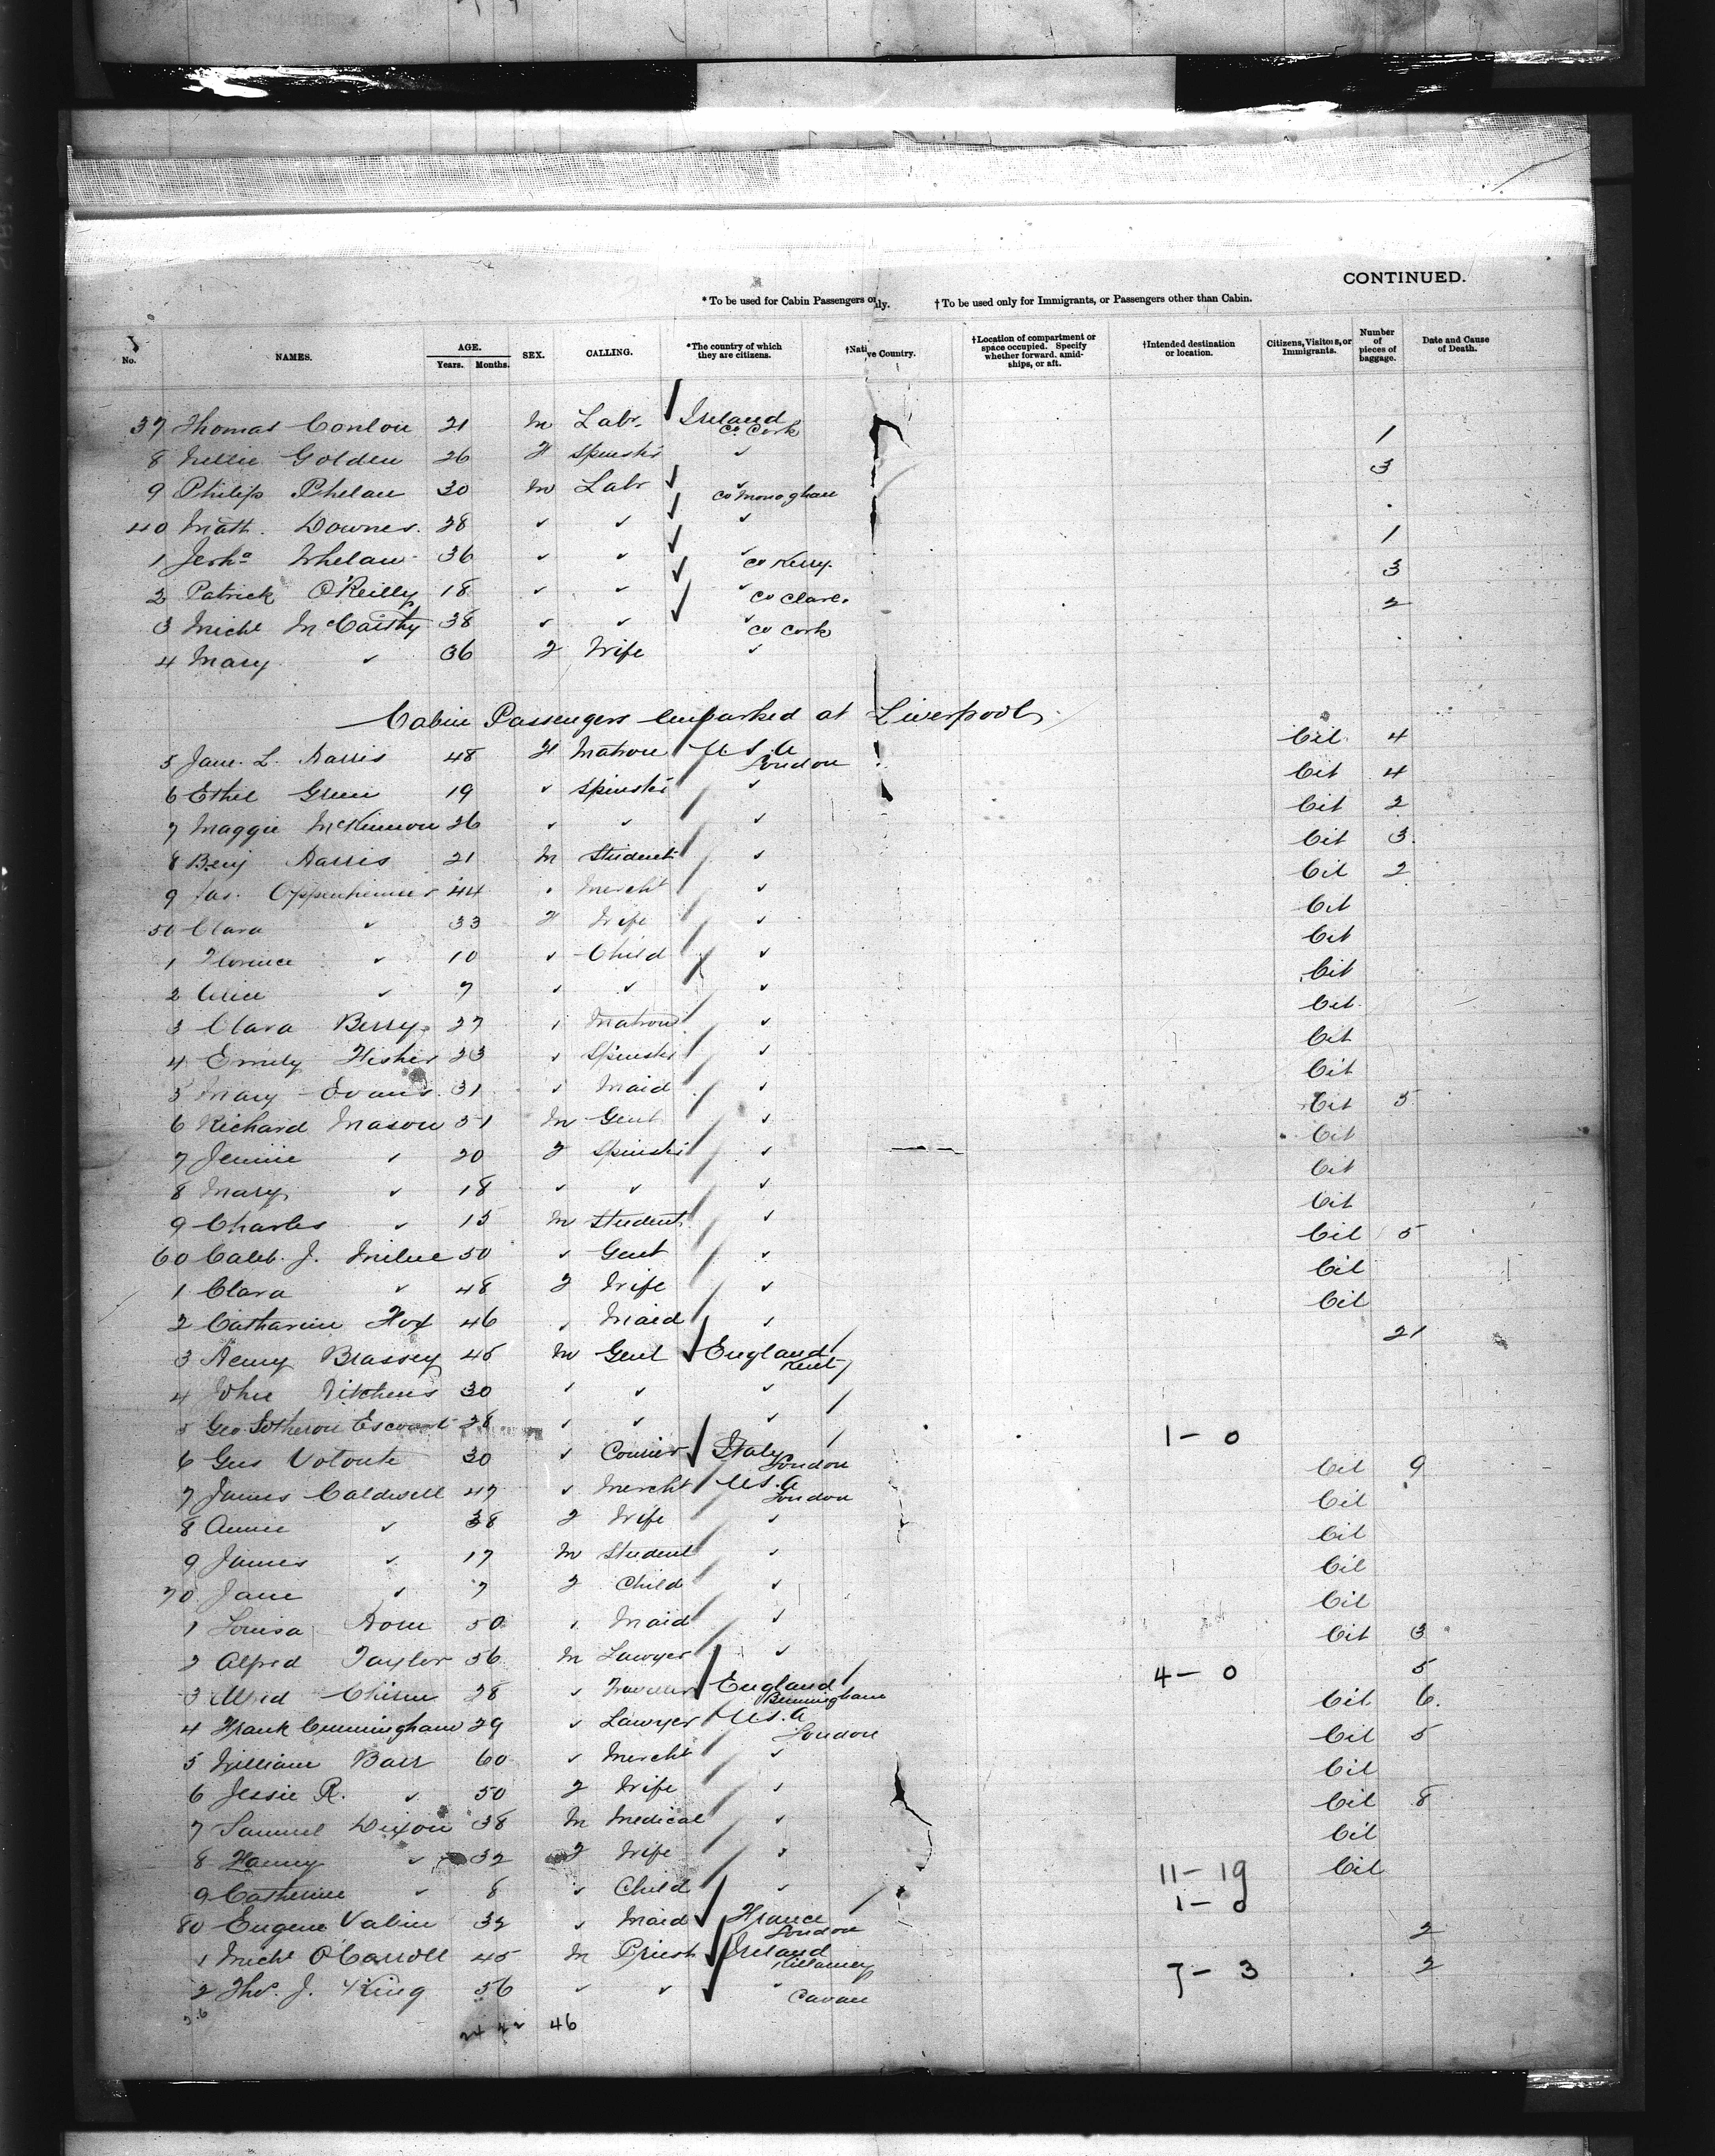 CONTINUED.
* To be used for Cabin Passengers only. † To be used only for Immigrants, or Passengers other than Cabin.
No. NAMES. AGE. Years. Months. SEX. CALLING. *The country of which they are citizens. †Native Country. †Location of compartment or space occupied. Specify whether forward, amidships, or aft. †Intended destination or location. Citizens, Visitors, or Immigrants. Number of pieces of baggage. Date and Cause of Death.
37 Thomas Conlon 21 M Labr. Ireland Co. Cork 1
8 Nellie Golden 26 F Spinster ✓ 3
9 Philip Phelan 30 M Labr ✓ Co Monoghan
40 Math. Downes. 28 ✓ ✓ ✓ 1
1 Whelan 36 ✓ ✓ ✓ Co Kerry. 3
2 Patrick O'Reilly 18 ✓ ✓ ✓ Co Clare. 2
3 Michl McCarthy 38 ✓ ✓ ✓ Co Cork
4 Mary ✓ 36 F Wife ✓
Cabin Passengers embarked at Liverpool
5 Jane L. Harris 48 F Matron U.S.A London Cit 4
6 Ethel Green 19 ✓ Spinster ✓ Cit 4
7 Maggie McKinnon 26 ✓ ✓ ✓ Cit 2
8 Benj Harris 21 M Student ✓ Cit 3
9 Jas. Oppenheimer 44 Mercht ✓ Cit 2
50 Clara ✓ 33 F Wife ✓ Cit
1 Florence ✓ 10 ✓ Child ✓ Cit
2 Alice ✓ 7 ✓ ✓ ✓ Cit
3 Clara Berry 27 ✓ Matron ✓ Cit
4 Emily Fisher 23 ✓ Spinster ✓ Cit
5 Mary Evans. 31 ✓ Maid ✓ Cit
6 Richard Mason 51 M Gent ✓ Cit 5
7 Jennie ✓ 20 F Spinster ✓ Cit
8 Mary ✓ 18 ✓ ✓ ✓ Cit
9 Charles ✓ 15 M Student ✓ Cit
60 Caleb. J. Milne 50 ✓ Gent ✓ Cit 5
1 Clara ✓ 48 F Wife ✓ Cit
2 Catharine 46 ✓ Maid ✓ Cit
3 Henry Brassey 45 M Gent England Kent 21
4 John Hitchens 30 ✓ ✓ ✓
5 Geo Sotheron Escourt 28 ✓ ✓ ✓
6 Gus Volonte 30 ✓ Courier Italy London 1 - 0
7 James Caldwell 47 ✓ Mercht U.S.A London Cit 9
8 Annie ✓ 38 F Wife ✓ Cit
9 James ✓ 17 M Student ✓ Cit
70 Jane ✓ 7 F Child ✓ Cit
1 Louisa 50 ✓ Maid ✓ Cit
2 Alfred Taylor 56 M Lawyer ✓ Cit 3
3 Alfred 28 ✓ England Birmingham 4 - 0 5
4 Frank Cunningham 29 ✓ Lawyer U.S.A London Cit 6.
5 William Barr 60 ✓ Mercht ✓ Cit 5
6 Jessie R. ✓ 50 F Wife ✓ Cit
7 Samuel Dixon 38 M Medical ✓ Cit 8
8 Fanny ✓ 32 F Wife ✓ Cit
9 Catherine ✓ 8 ✓ Child ✓ 11 - 19 Cit
80 Eugene Valin 32 ✓ Maid France London 1 - 0
1 Michl O'Carroll 45 M Priest Ireland Killarney 2
2 Thos. J. King 56 ✓ ✓ ✓ Cavan 7 - 3 2
24 22 46